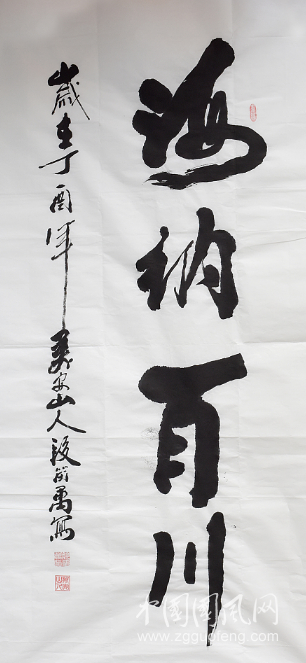 海纳百川
岁在丁酉年 山人段 写
中国国风网
www.zgguofeng.com